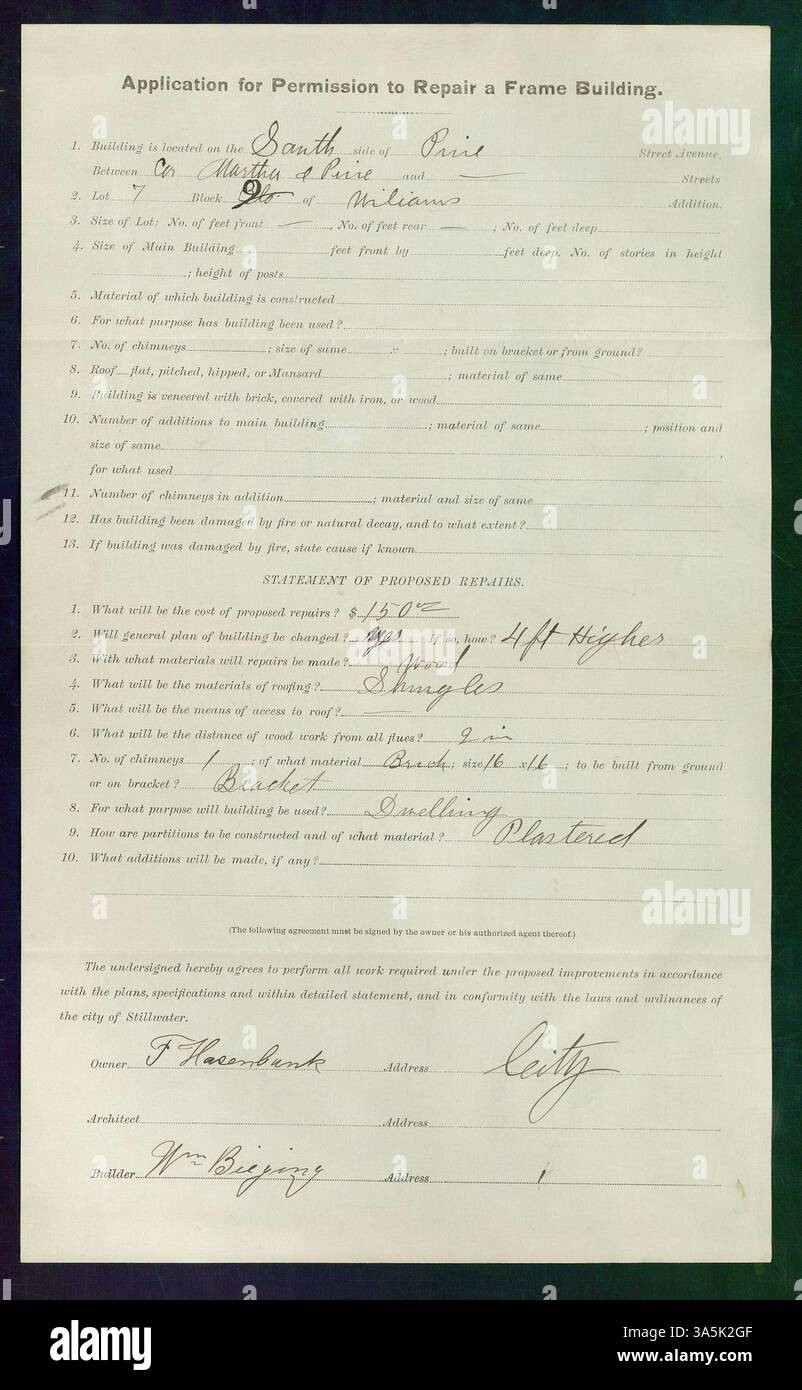 Application for Permission to Repair a Frame Building.
1. Building is located on the South side of Pine Street Avenue,
Between Cor Martha & Pine and — Streets
2. Lot 7 Block 9 of Wiliams Addition.
3. Size of Lot: No. of feet front —, No. of feet rear —; No. of feet deep
4. Size of Main Building feet front by feet deep. No. of stories in height
; height of posts
5. Material of which building is constructed
6. For what purpose has building been used?
7. No. of chimneys ; size of same x ; built on bracket or from ground?
8. Roof flat, pitched, hipped, or Mansard ; material of same
9. Building is veneered with brick, covered with iron, or wood
10. Number of additions to main building ; material of same ; position and
size of same ,
for what used
11. Number of chimneys in addition ; material and size of same
12. Has building been damaged by fire or natural decay, and to what extent?
13. If building was damaged by fire, state cause if known
STATEMENT OF PROPOSED REPAIRS.
1. What will be the cost of proposed repairs? $ 150
2. Will general plan of building be changed? yes If so, how? 4 ft Higher
3. With what materials will repairs be made? Wood
4. What will be the materials of roofing? Shingles
5. What will be the means of access to roof? —
6. What will be the distance of wood work from all flues? 2 in
7. No. of chimneys 1 ; of what material Brick; size 16 x 16 ; to be built from ground
or on bracket? Bracket
8. For what purpose will building be used? Dwelling
9. How are partitions to be constructed and of what material? Plastered
10. What additions will be made, if any?
(The following agreement must be signed by the owner or his authorized agent thereof.)
The undersigned hereby agrees to perform all work required under the proposed improvements in accordance
with the plans, specifications and within detailed statement, and in conformity with the laws and ordinances of
the city of Stillwater.
Owner F Hasenbank Address City
Architect Address
Builder Wm Bieging Address
alamy
Image ID: 3A5K2GF
www.alamy.com